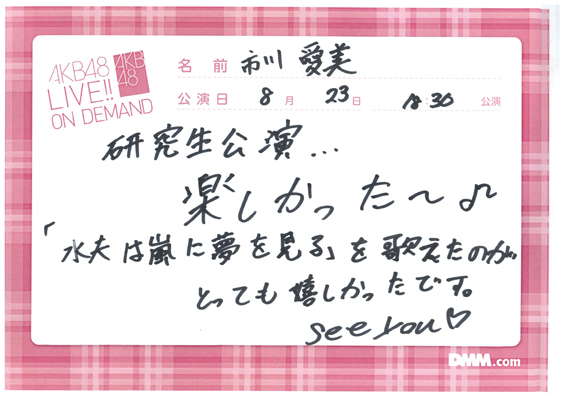 AKB48
LIVE!!
ON DEMAND
AKB
48
名前 市川愛美
公演日 8月 23日 18:30 公演
研究生公演...
楽しかった〜♪
「水夫は嵐に夢を見る」を歌えたのが
とっても嬉しかったです。
see you♡
DMM.com